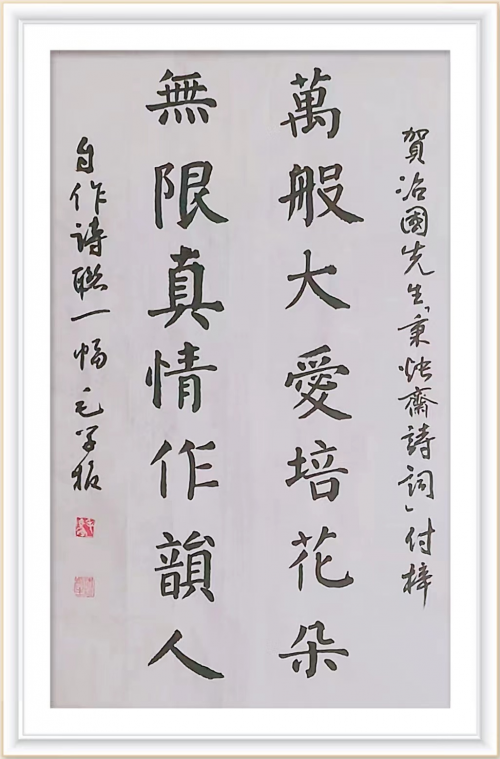 賀治國先生「秉烛齋詩詞」付梓
萬般大愛培花朵
無限真情作韻人
自作詩聯一幅毛学振